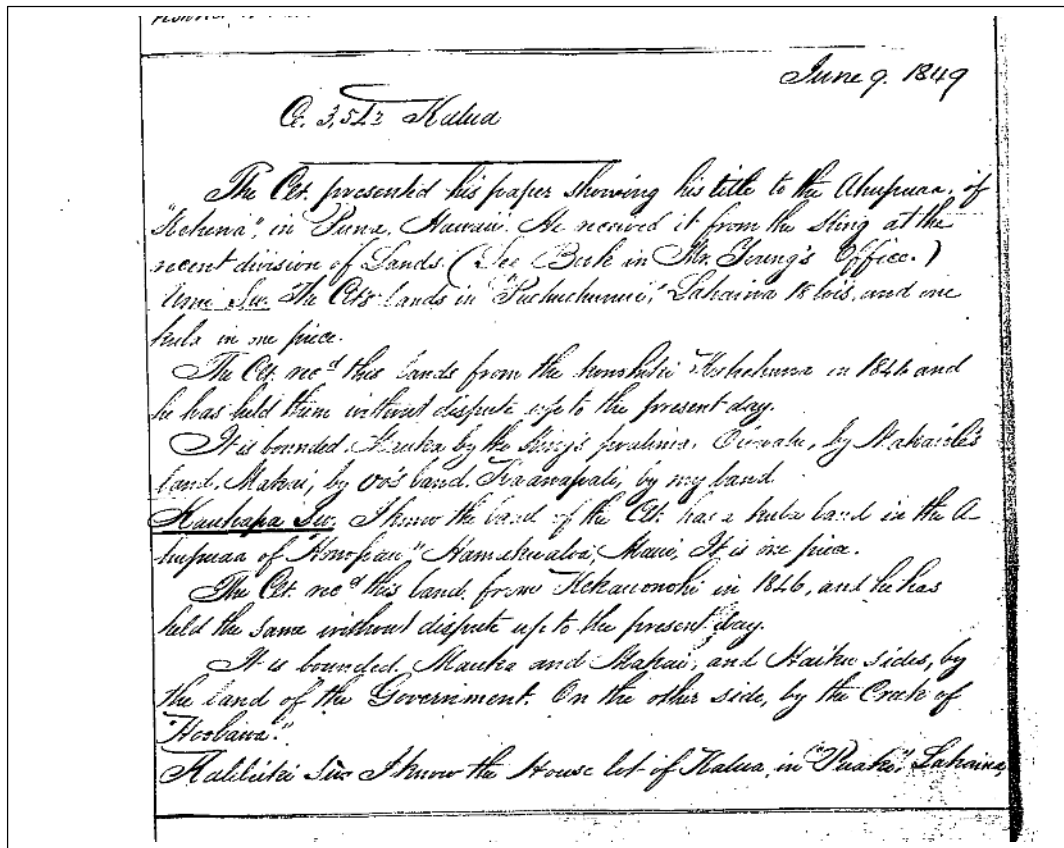 June 9. 1849
Ct. 3,542 Kalua
The Clt. presented his paper showing his title to the Ahupuaa, of
"Kehena", in Puna, Hawaii. He received it from the King at the
recent division of Lands. (See Book in Mr. Young's Office.)
Sw. The Clt's lands in Lahaina 18 lois, and one
kula in one piece.
The Clt. recd this lands from the konohiki in 1846 and
he has held them without dispute up to the present day.
It is bounded. Mauka by the King's poalima. by Nahaolelo's
land. Makai, by Oo's land. Kaanapali, by my land
Kauhapa Sw. I know the land of the Clt. has a kula land in the A-
hupuaa of "Honopau" Hamakualoa, Maui, It is one piece.
The Clt. recd this land from Kekauonohi in 1846, and he has
held the same without dispute up to the present day.
It is bounded. Mauka and Makai, and Haiku sides, by
the land of the Government. On the other side, by the Creek of
"Hoolawa."
Sw. I know the House lot of Kalua, in "Puako", Lahaina,